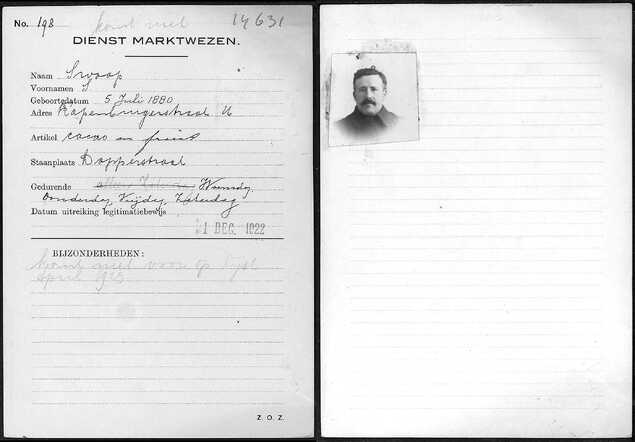 No. 198 komt niet 14631
DIENST MARKTWEZEN.
Naam Swaap
Voornamen S
Geboortedatum 5 Juli 1880
Adres Rapenburgerstraat 16
Artikel cacao en fruit
Staanplaats Dapperstraat
Gedurende Woensdag,
Donderdag, Vrijdag, Zaterdag
Datum uitreiking legitimatiebewijs
1 DEC. 1922
BIJZONDERHEDEN:
komt niet voor op lijst
April 1923
Z. O. Z.